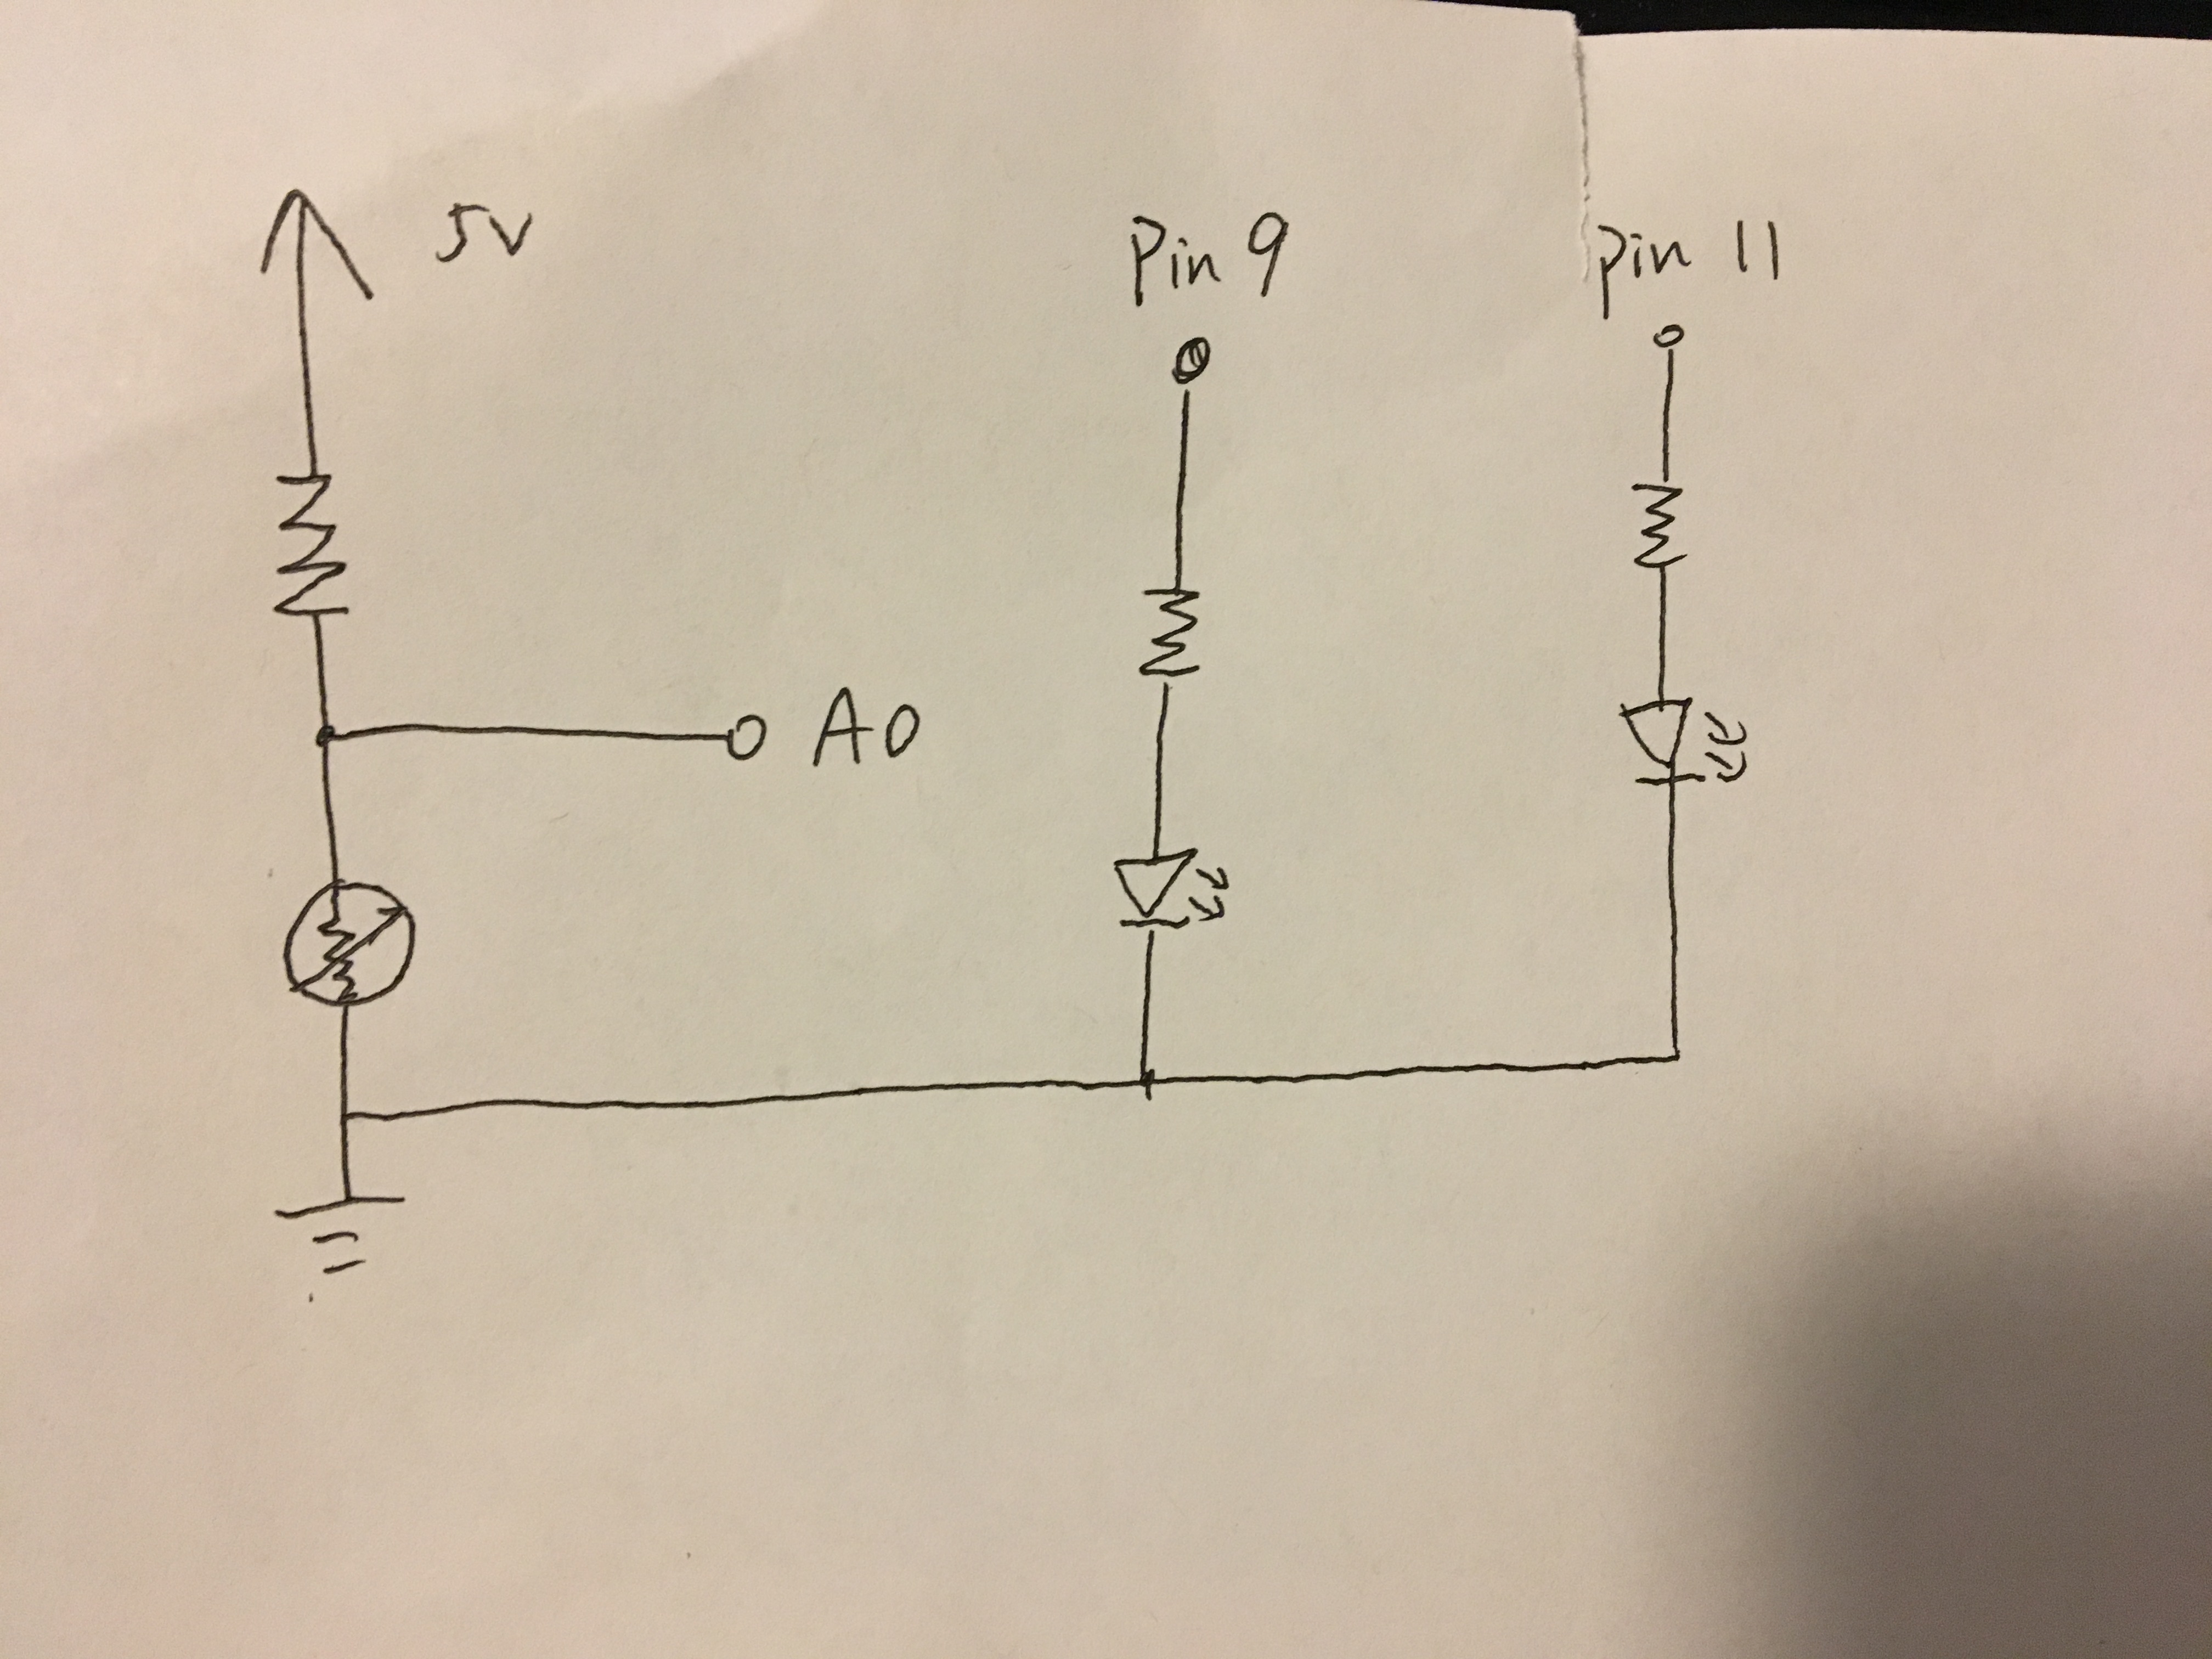 5V
Pin 9
Pin 11
A0